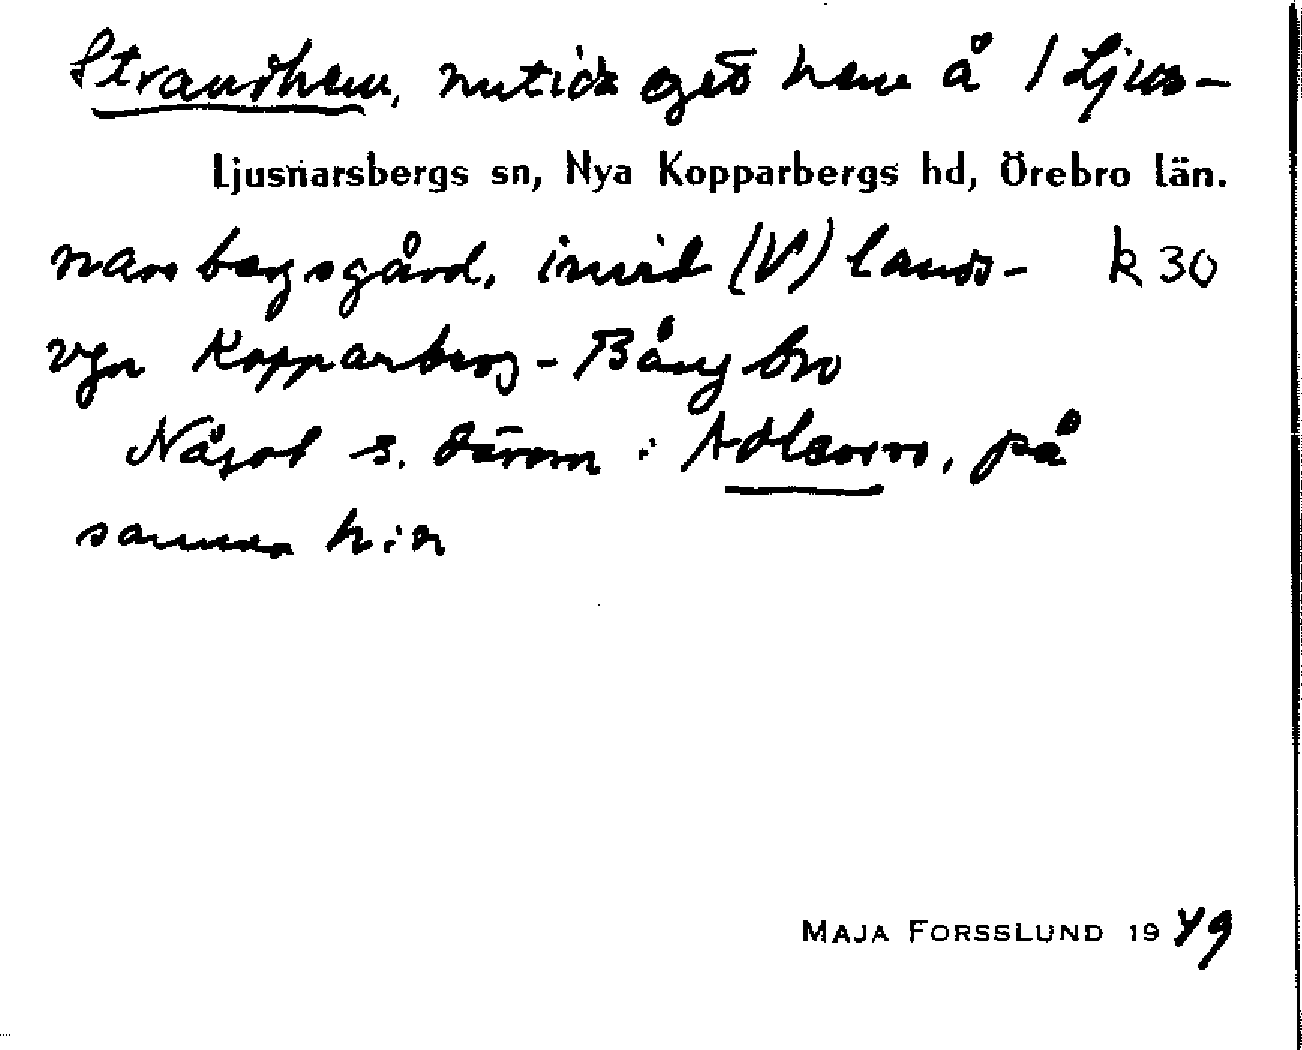 Strandhem, nutida eget hem å 1 Ljus-
Ljusnarsbergs sn, Nya Kopparbergs hd, Örebro län.
narsbergsgård, invid (V) lands-
k 30
vgn Kopparberg - Bångbro
Något s. därom : på
samma h:n
MAJA FORSSLUND 1949